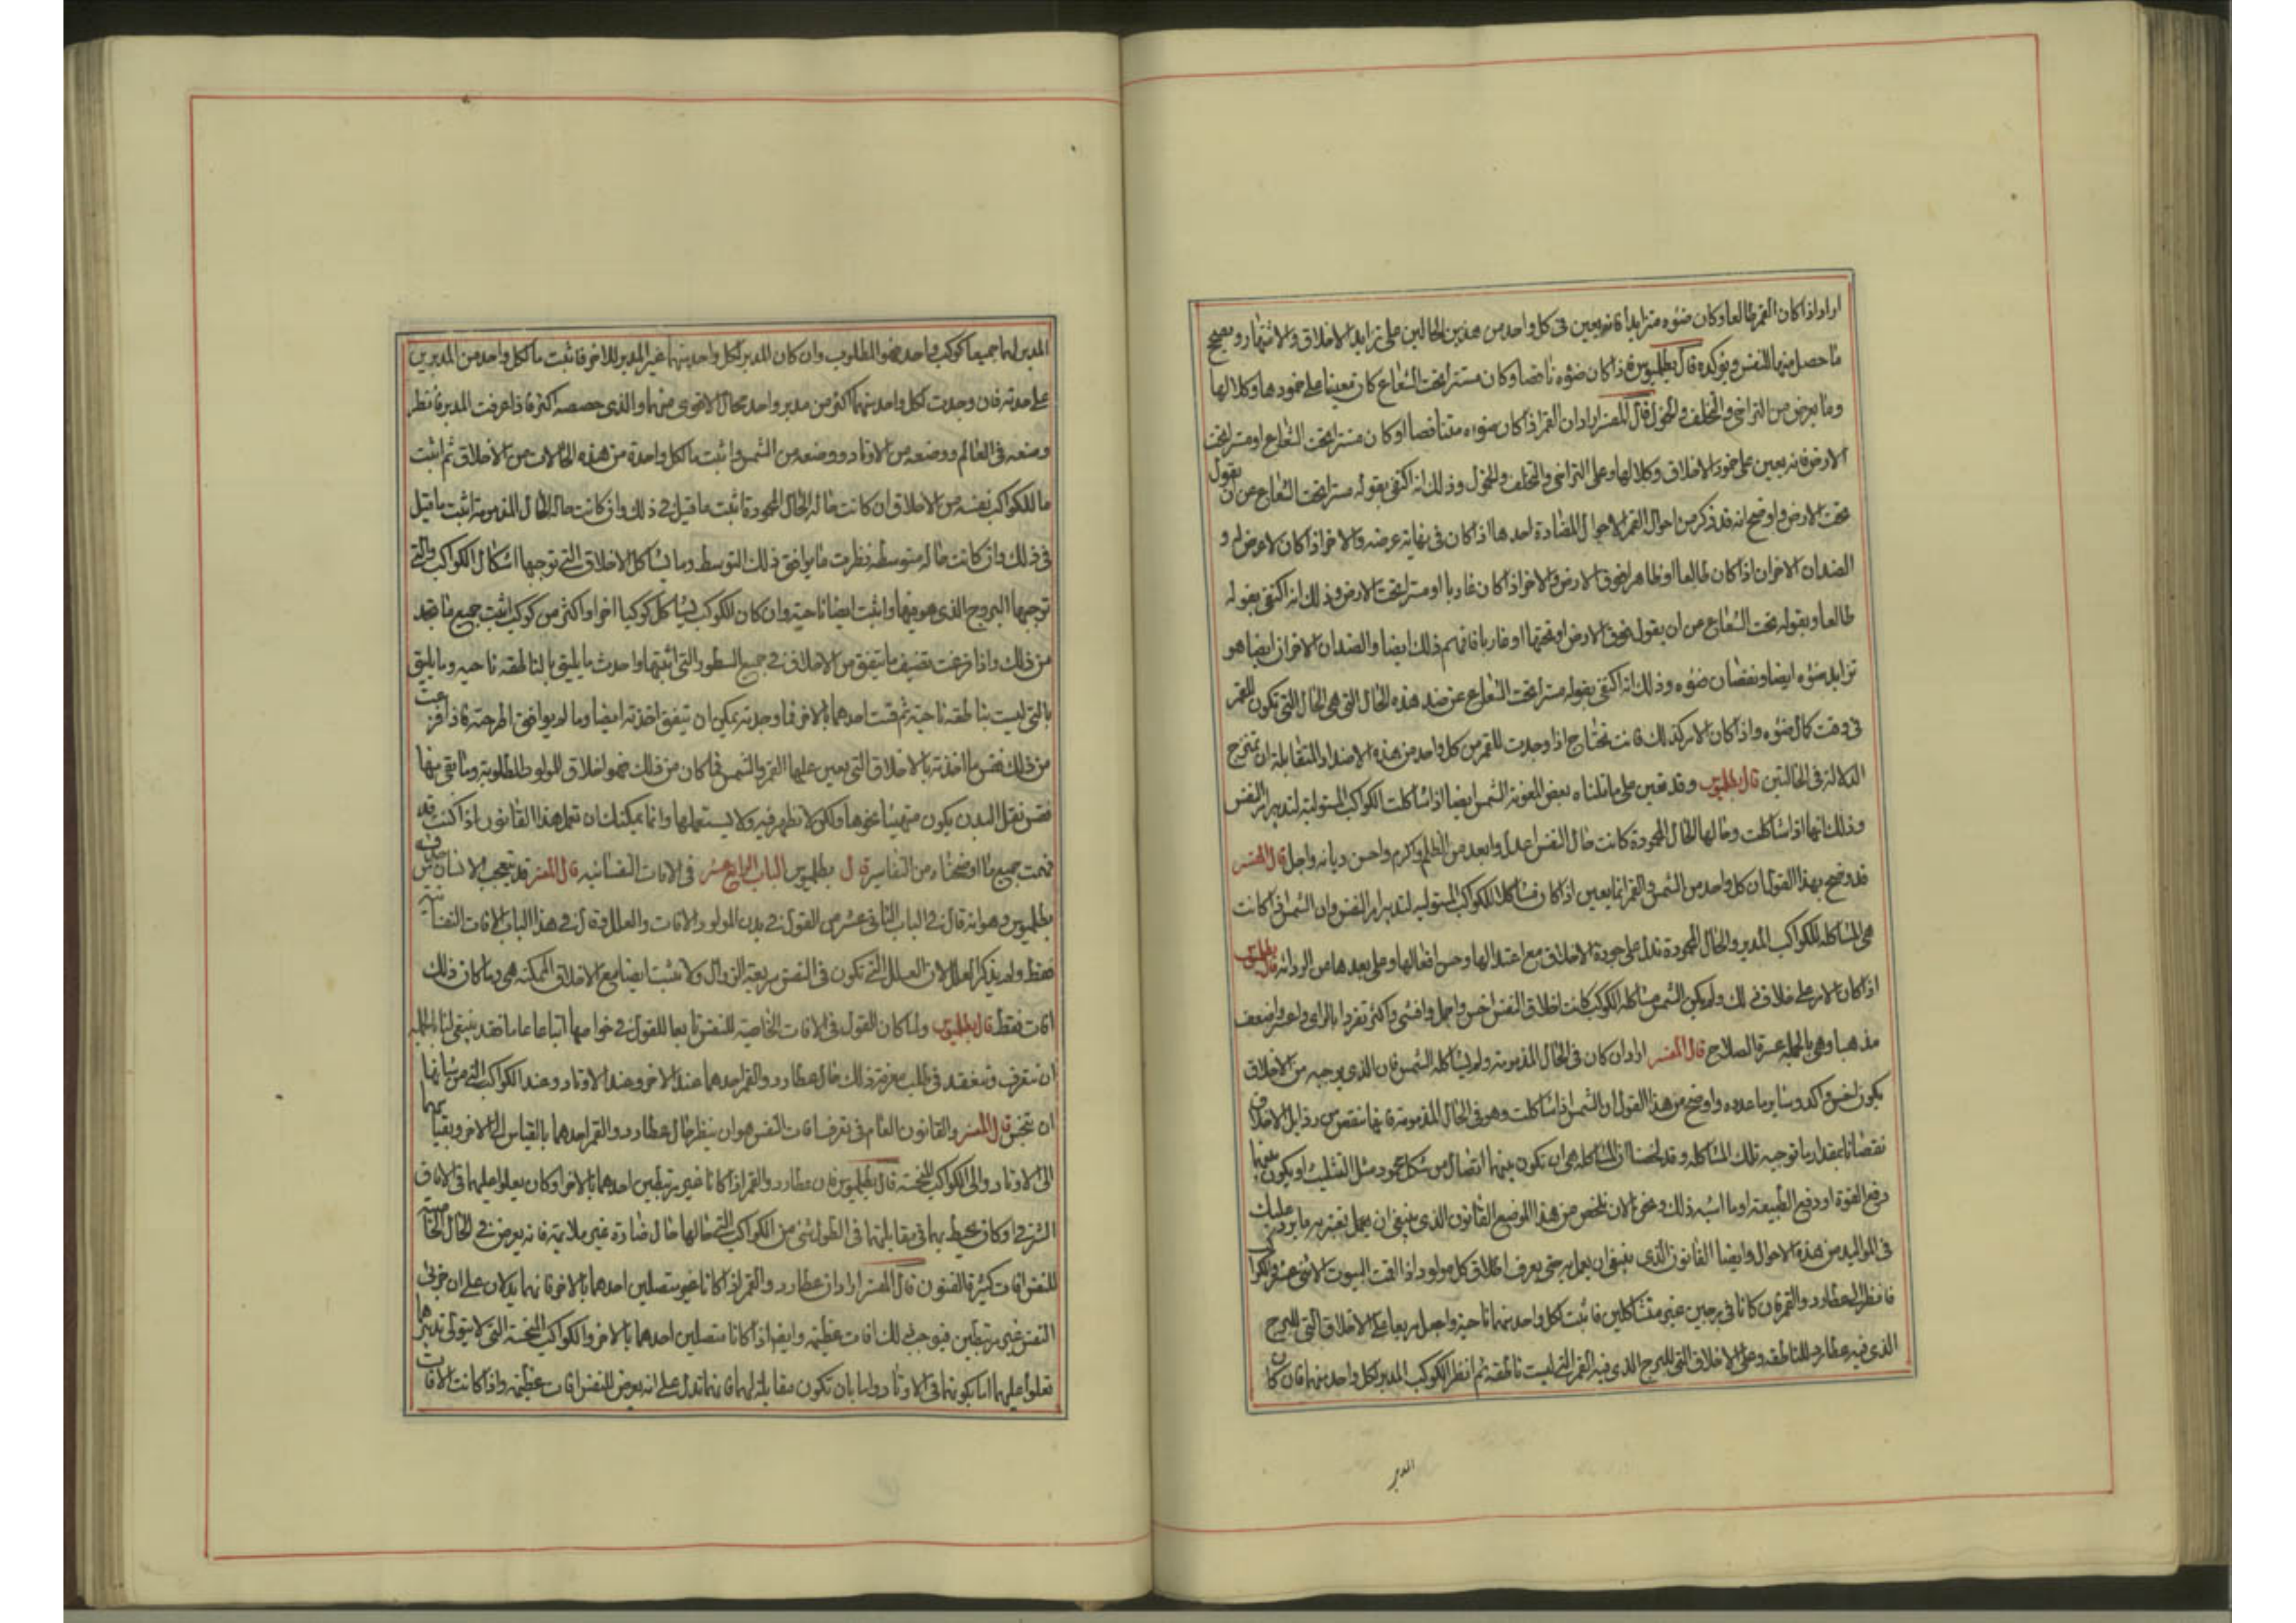 اراد اذا كان القمر طالعا وكان ضوءه متزايدا فانه يعين فى كل واحد من هذين الحالين على تزايد الاخلاق والاشتهار ويصحح
ما حصل منهما للنفس ويوكده قال بطلميوس فاذا كان ضوءه ناقصا وكان مستترا تحت الشعاع كان معينا على خمودها وكلالها
وما يعرض من التراخى والتخلف والخمول قال المفسر اراد ان القمر اذا كان ضوءه متناقصا او كان مستترا تحت الشعاع او مستترا تحت
الارض فانه يعين على خمود الاخلاق وكلالها وعلى التراخى والتخلف والخمول وذلك انه اكتفى بقوله مستترا تحت الشعاع عن ان يقول
تحت الارض واوضح انه قد ذكر من احوال القمر الاحوال المضادة احدها اذا كان فى نهاية عرضه والاخر اذا كان لا عرض له و
الضدان الاخران اذا كان طالعا او ظاهرا فوق الارض والاخر اذا كان غاربا او مستترا تحت الارض وذلك انه اكتفى بقوله
طالعا وبقوله تحت الشعاع من ان يقول فوق الارض او تحتها او غاربا فافهم ذلك ايضا والضدان الاخران ايضا هو
تزايد ضوءه ايضا ونقصان ضوءه وذلك انه اكتفى بقوله مستترا تحت الشعاع عن ضد هذه الحال التى هى الحال التى تكون للقمر
فى وقت كمال ضوءه واذا كان الامر كذلك فانت تحتاج اذا وجدت للقمر من كل واحد من هذه الاضداد المتقابلة ان تمتزج
الدلالة فى الحالتين قال بطلميوس وقد تعين على ما قلناه بعض المعونة الشمس ايضا اذا شاكلت الكواكب المستولية لتدبير امر النفس
وذلك انها اذا شاكلت وحالها الحال المحمودة كانت حال النفس اعدل وابعد من الظلم واكرم واحسن ديانة واجل قال المفسر
قد وضح بهذا القول ان كل واحد من الشمس والقمر انما يعين اذا كان مشاكلا للكواكب المستوليه لتدبير امر النفس وان الشمس اذا كانت
هى المشاكله للكواكب المدبر والحال المحمودة تدل على جودة الاخلاق مع اعتدالها وحسن افعالها وعلى بعدها من الرداءة قال بطلميوس
اذا كان الامر على خلاف ذلك ولم يكن الشمس مشاكلة للكوكب كانت اخلاق النفس اخس واكثر تفردا بالراى واعسر واضعف
مذهبا وهى بالجملة عسرة الصلاح قال المفسر اراد ان كان فى الحال المذمومة ولم يشاكله الشمس فان الذى يوجبه من الاخلاق
يكون اخس واكد وساير ما عدده واوضح من هذا القول ان الشمس اذا شاكلت وهو فى الحال المذمومة فانها تنقص من رذايل الاخلاق
نقصانا بمقدار ما توجبه تلك المشاكله وقد لخصنا ان المشاكله هى ان تكون بينهما اتصال من شكل محمود مثل التثليث او يكون بينهما
دفع القوة او دفع الطبيعة او ما اشبه ذلك ونحن الان نلخص من هذا الموضع القانون الذى ينبغى ان يعمل به ما يرد عليك
فى المواليد من هذه الاحوال وايضا القانون الذى ينبغى ان يعمل به حتى يعرف اخلاق كل مولود اذا اقمت البيوت الاثنى عشر والكواكب
فانظر الى عطارد والقمر فان كانا فى برجين غير متشاكلين فاثبت لكل واحد منهما ناحية واجعل مربعا على الاخلاق التى للبرج
الذى فيه عطارد للناطقه وعلى الاخلاق التى للبرج الذى فيه القمر التى ليست ناطقه ثم انظر الكوكب المدبر لكل واحد منهما فان كان
المدبر
المدبر لهما جميعا كوكب واحد فهو المطلوب وان كان المدبر لكل واحد منهما غير المدبر للاخر فاثبت ما لكل واحد من المدبرين
على حدته فان وجدت لكل واحد منهما اكثر من مدبر واحد فحال الاقوى منهما والذى حصصه اكثر فاذا عرفت المدبر فانظر
وضعه فى العالم ووضعه من الاوتاد ووضعه من الشمس واثبت ما لكل واحدة من هذه الحالات من الاخلاق ثم اثبت
ما للكواكب نفسه من الاخلاق ان كانت حاله الحال المحمودة فاثبت ما قيل فى ذلك وان كانت حاله الحال المذمومة اثبت ما قيل
فى ذلك وان كانت حاله متوسطه نظرت ما يوافق ذلك التوسط وما يشاكل الاخلاق التى توجبها اشكال الكواكب والتى
توجبها البروج الذى هو فيها واثبت ايضا ناحية وان كان الكوكب يشاكل كوكبا اخر او اكثر من كوكب اثبت جميع ما تجد
من ذلك واذا فرغت تضيف ما يتفق من الاخلاق فى جميع السطور التى اثبتها واحدث ما يليق بالناطقه ناحيه وما يليق
بالتى ليست بناطقه ناحية ثم قست احدهما بالاخر فما وجدته يمكن ان يتفق اخذته ايضا وما لم يوافق اطرحته فاذا فرغت
من ذلك فقس ما اخذته بالاخلاق التى يعين عليها القمر والشمس فما كان من ذلك فهو اخلاق المولود المطلوبة وما بقى منها
فقس نقل البدن يكون متهيئا نحوها ولكن لا تظهر فيه ولا يستعملها وانما يمكنك ان تعمل هذا القانون اذا كنت قد
فهمت جميع ما اوضحناه من التفاسير قال بطلميوس الباب الرابع عشر فى الافات النفسانيه قال المفسر قد يتعجب الانسان من
بطلميوس وهو انه قال فى الباب الثانى عشر من القول فى بدن المولود والافات والعلل وقال فى هذا الباب الافات النفسانية
فقط ولم يذكر العلل لان العلل التى تكون فى النفس سريعة الزوال ولا تثبت ايضا مع الاخلاق الممكنة هى وما كان ذلك
افات فقط قال بطلميوس ولما كان القول فى الافات الخاصية للنفس تابعا للقول فى خواصها اتباعا عاما فقد ينبغى لنا بالجملة
ان نتعرف ونتفقد فى طلب معرفة ذلك حال عطارد والقمر احدهما عند الاخر وعند الاوتاد وعند الكواكب التى من شانها
ان تنحس قال المفسر والقانون العام فى تعرف افات النفس هو ان ينظر حال عطارد والقمر احدهما بالقياس الى الاخر وبقياسهما
الى الاوتاد والى الكواكب المنحسة قال بطلميوس فان عطارد والقمر اذا كانا غير مرتبطين احدهما بالاخر او كان يعلوا عليهما فى الافاق
الشرقى او كان يحيط بهما فى مقابلتهما فى الطول شئ من الكواكب التى حالها حال ضارة غير ملايمة فانه يعرض فى الحال الخاصية
للنفس افات كثيرة الفنون قال المفسر اراد ان عطارد والقمر اذا كانا غير متصلين احدهما بالاخر فانهما يدلان على ان جزئى
النفس غير مرتبطين فيوجب ذلك افات عظيمه وايضا اذا كانا متصلين احدهما بالاخر والكواكب المنحسة التى لا يتولى تدبيرها
تعلوا عليهما اما بكونها فى الاوتاد واما بان تكون مقابلة لهما فانها تدل على انه يعرض للنفس افات عظيمه واذا كانت الافات